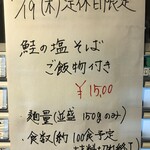 /19(木)定休日限定
鮭の塩そば
ご飯物付き
¥1500
・麺量(並盛150gのみ)
・食数(約100食予定